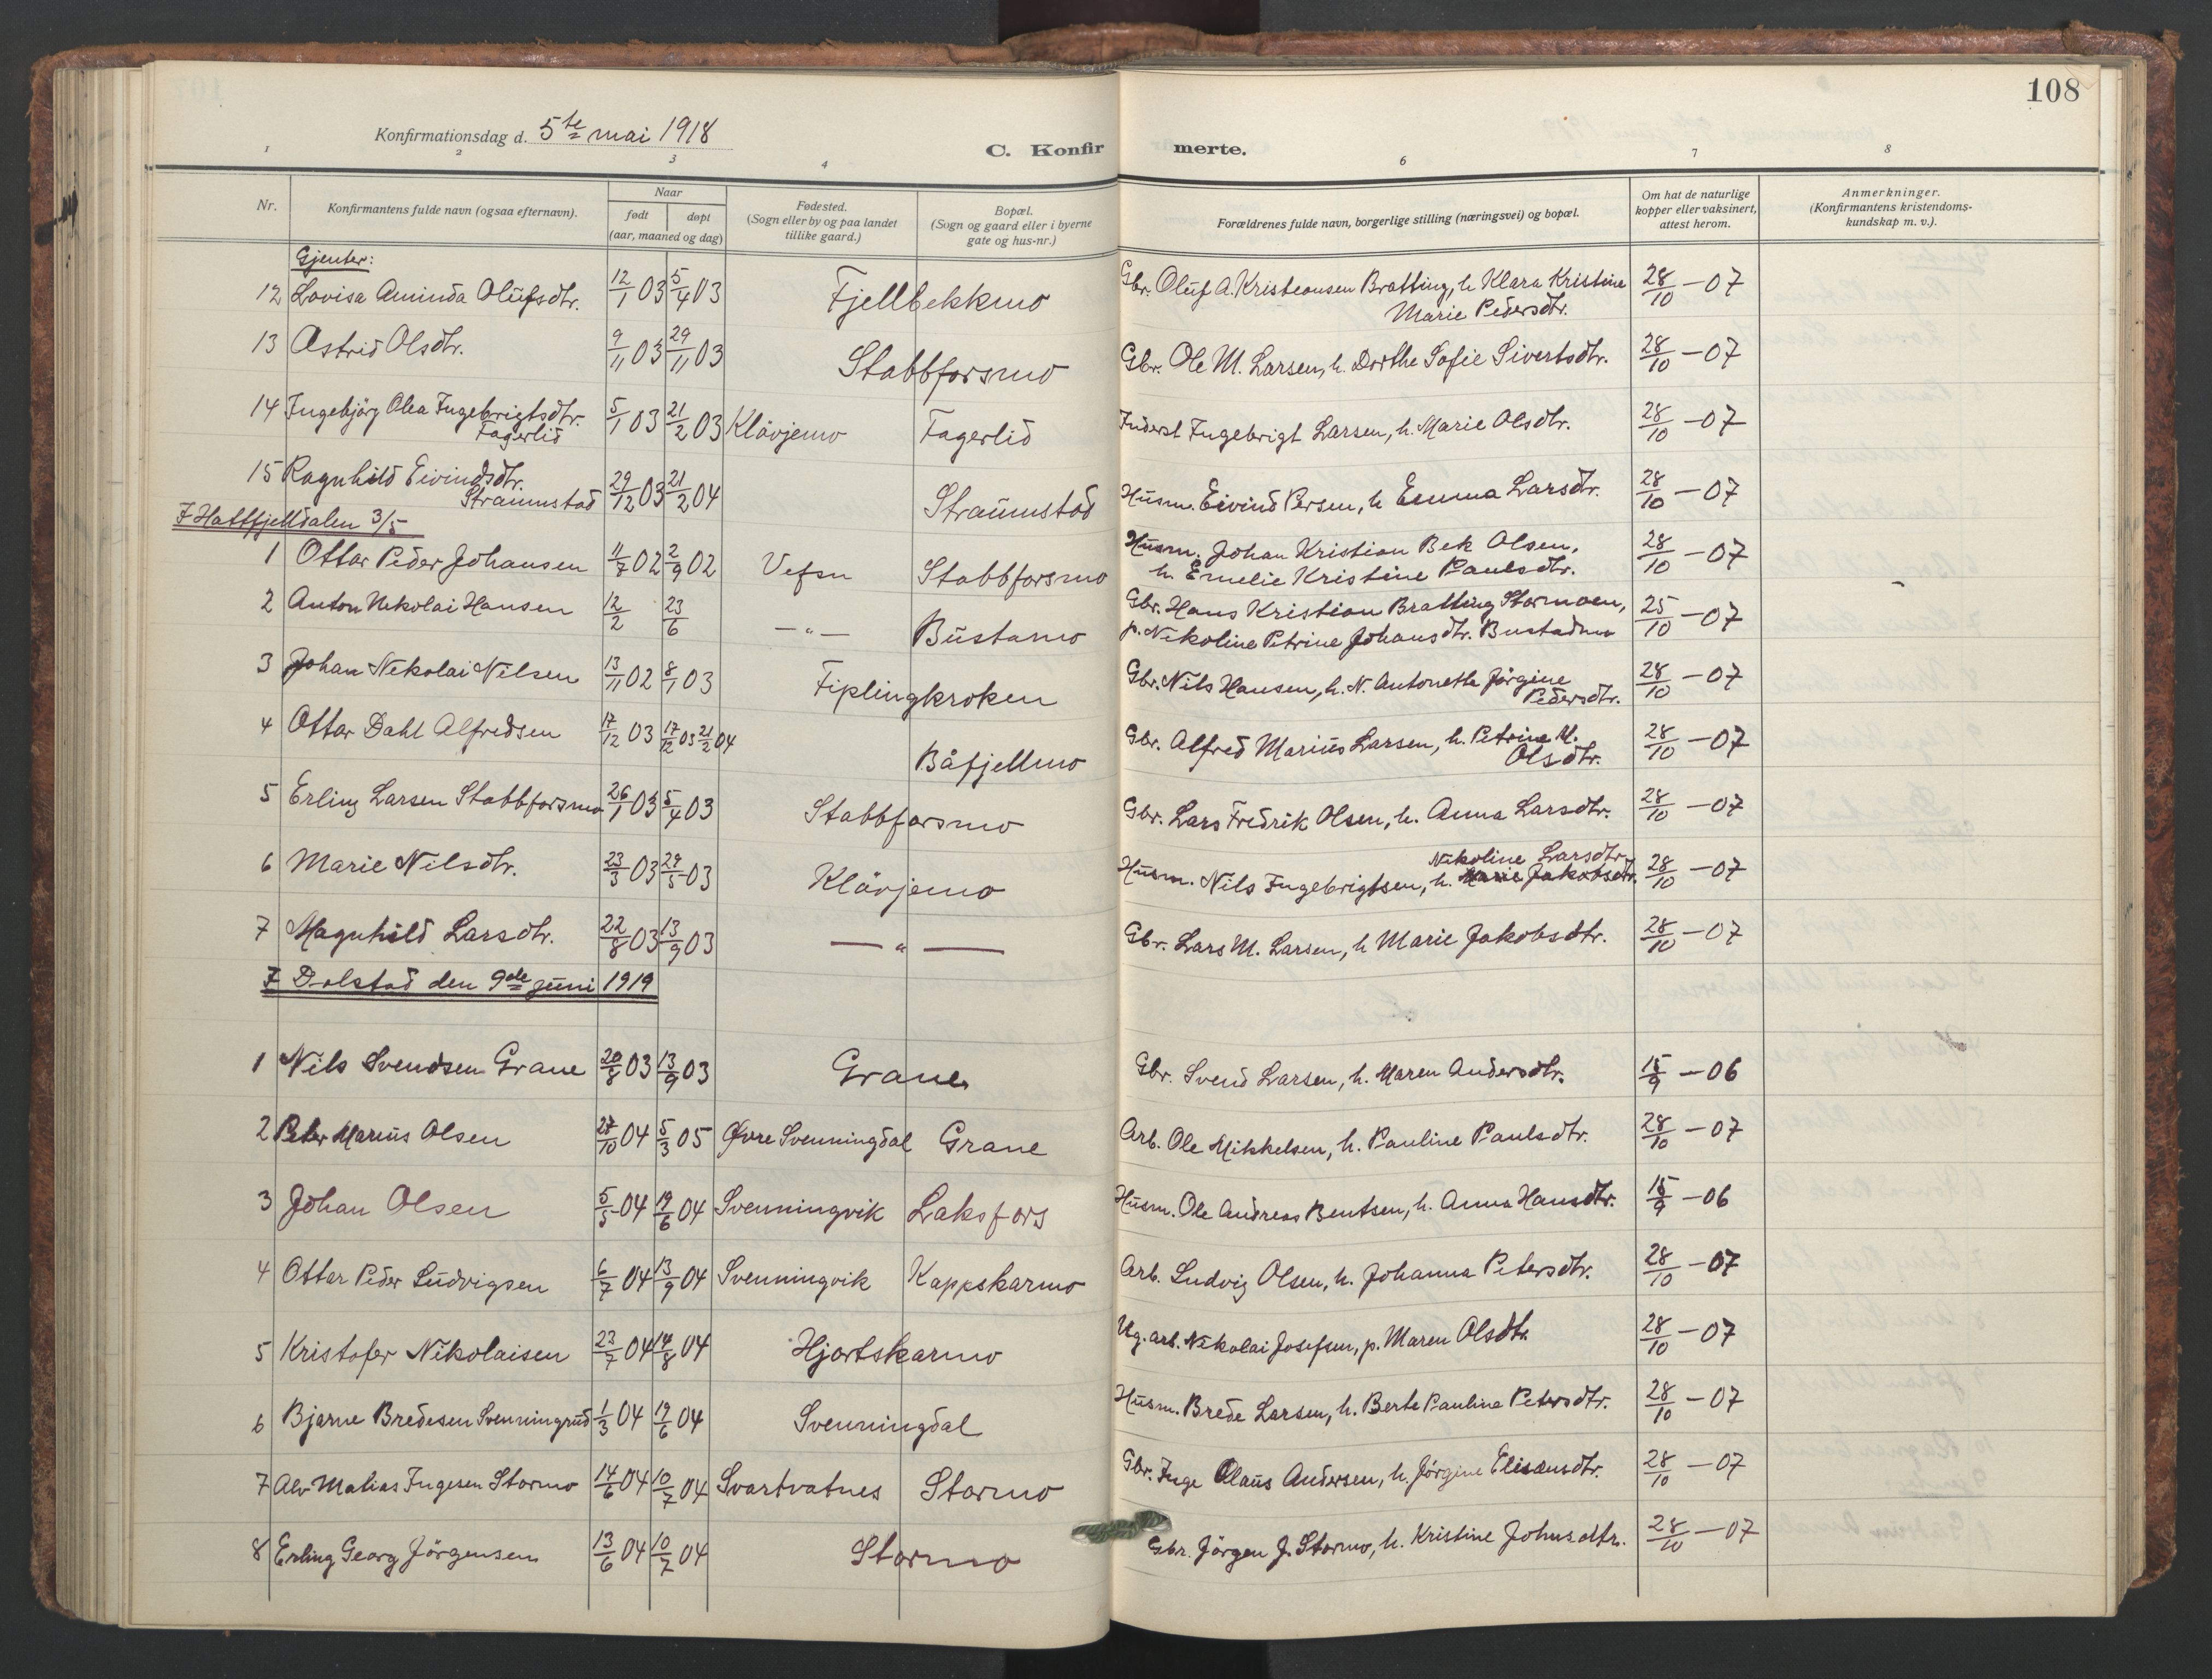 108
Konfirmationsdag d. 5te mai 1918
C. Konfirmerte.
1 2 3 4 6 7 8
Nr.
Konfirmantens fulde navn (ogsaa efternavn).
Naar
født døpt
(aar, maaned og dag)
Fødested.
(Sogn eller by og paa landet
tillike gaard.)
Bopæl.
(Sogn og gaard eller i byerne
gate og hus-nr.)
Forældrenes fulde navn, borgerlige stilling (næringsvei) og bopæl.
Om hat de naturlige
kopper eller vaksinert,
attest herom.
Anmerkninger.
(Konfirmantens kristendoms-
kundskap m. v.).
Gjenter:
12 Lovisa Aminda Olufsdtr. 12/1 03 5/4 03 Fjellbekkmo Gbr. Oluf A. Kristiansen Bratting, h. Klara Kristine 28/10 – 07
Marie Pedersdtr.
13 Astrid Olsdtr. 9/11 03 29/11 03 Stabbforsmo Gbr. Ole M. Larsen, h. Dorthe Sofie Sivertsdtr. 28/10 – 07
14 Ingebjörg Olea Ingebrigtsdtr. 5/1 03 21/2 03 Klåvjemo Fagerlid Inderst Ingebrigt Larsen, h. Marie Olsdtr. 28/10 – 07
Fagerlid
15 Ragnhild Eivindsdtr. 29/12 03 21/2 04 Straumstad Husm. Eivind Persen, h. Emma Larsdtr. 28/10 – 07
Straumstad
I Hattfjelldalen 3/5
1 Ottar Peder Johansen 11/7 02 2/9 02 Vefsn Stabbforsmo Husm. Johan Kristian Bek Olsen, 28/10 – 07
h. Emelie Kristine Paulsdtr.
2 Anton Nikolai Hansen 12/2 23/6 – " – Bustamo Gbr. Hans Kristian Bratting Stormoen, 25/10 – 07
p. Nikoline Petrine Johansdtr. Bustadmo
3 Johan Nikolai Nilsen 13/11 02 8/1 03 Fiplingkroken Gbr. Nils Hansen, h. N. Antonette Jörgine 28/10 – 07
Pedersdtr.
4 Ottar Dahl Alfredsen 17/12 03 17/12 03 21/2 04 Båfjellmo Gbr. Alfred Marius Larsen, h. Petrine M. 28/10 – 07
Olsdtr.
5 Erling Larsen Stabbforsmo 26/1 03 5/4 03 Stabbforsmo Gbr. Lars Fredrik Olsen, h. Anna Larsdtr. 28/10 – 07
Nikoline Larsdtr.
6 Marie Nilsdtr. 23/3 03 24/5 03 Klåvjemo Husm. Nils Ingebrigtsen, h. Marie Jakobsdtr. 28/10 – 07
7 Magnhild Larsdtr. 22/8 03 13/9 03 – " – Gbr. Lars M. Larsen, h. Marie Jakobsdtr. 28/10 – 07
I Dolstad den 9de juni 1919
1 Nils Svendsen Grane 20/8 03 13/9 03 Grane Gbr. Svend Larsen, h. Maren Andersdtr. 15/9 – 06
2 Peter Marius Olsen 27/10 04 5/3 05 Øvre Svenningdal Grane Arb. Ole Mikkelsen, h. Pauline Paulsdtr. 28/10 – 07
3 Johan Olsen 5/5 04 19/6 04 Svenningvik Laksfors Husm. Ole Andreas Bentsen, h. Anna Hansdtr. 15/9 – 06
4 Ottar Peder Ludvigsen 6/7 04 13/9 04 Svenningvik Kappskarmo Arb. Ludvig Olsen, h. Johanna Petersdtr. 28/10 – 07
5 Kristofer Nikolaisen 23/7 04 14/8 04 Hjortskarmo Ug. arb. Nikolai Josefsen, p. Maren Olsdtr. 28/10 – 07
6 Bjarne Bredesen Svenningrud 1/3 04 19/6 04 Svenningdal Husm. Brede Larsen, h. Berte Pauline Petersdtr. 28/10 – 07
7 Alv Matias Ingesen Stormo 14/6 04 10/7 04 Svartvatnes Stormo Gbr. Inge Olaus Andersen, h. Jörgine Elisausdtr. 28/10 – 07
8 Erling Georg Jörgensen 13/6 04 10/7 04 Stormo Gbr. Jörgen J. Stormo, h. Kristine Johnsdtr. 28/10 – 07